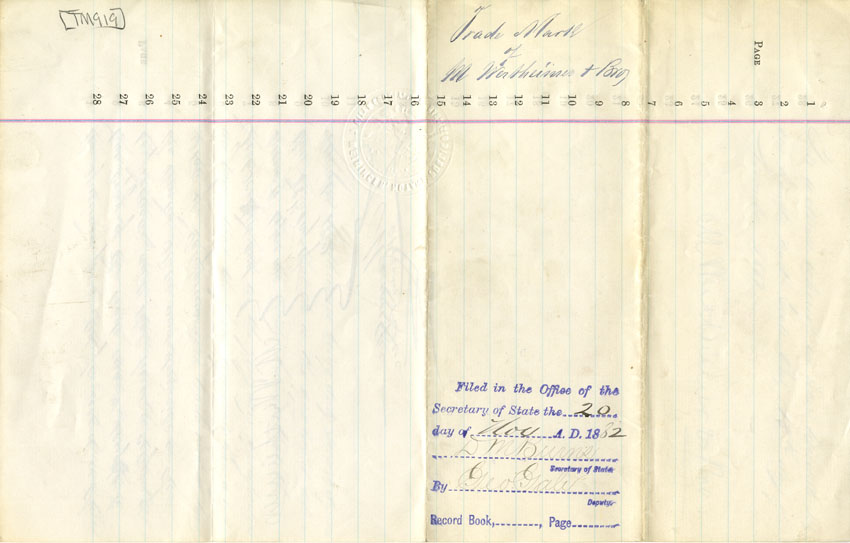 [TM919]
Trade Mark
of
M Wertheimer & Bro
PAGE
1
2
3
4
5
6
7
8
9
10
11
12
13
14
15
16
17
18
19
20
21
22
23
24
25
26
27
28
Filed in the Office of the
Secretary of State the 20
day of Nov A. D. 1882
D M Burns
Secretary of State
By Geo
Deputy.
Record Book, , Page